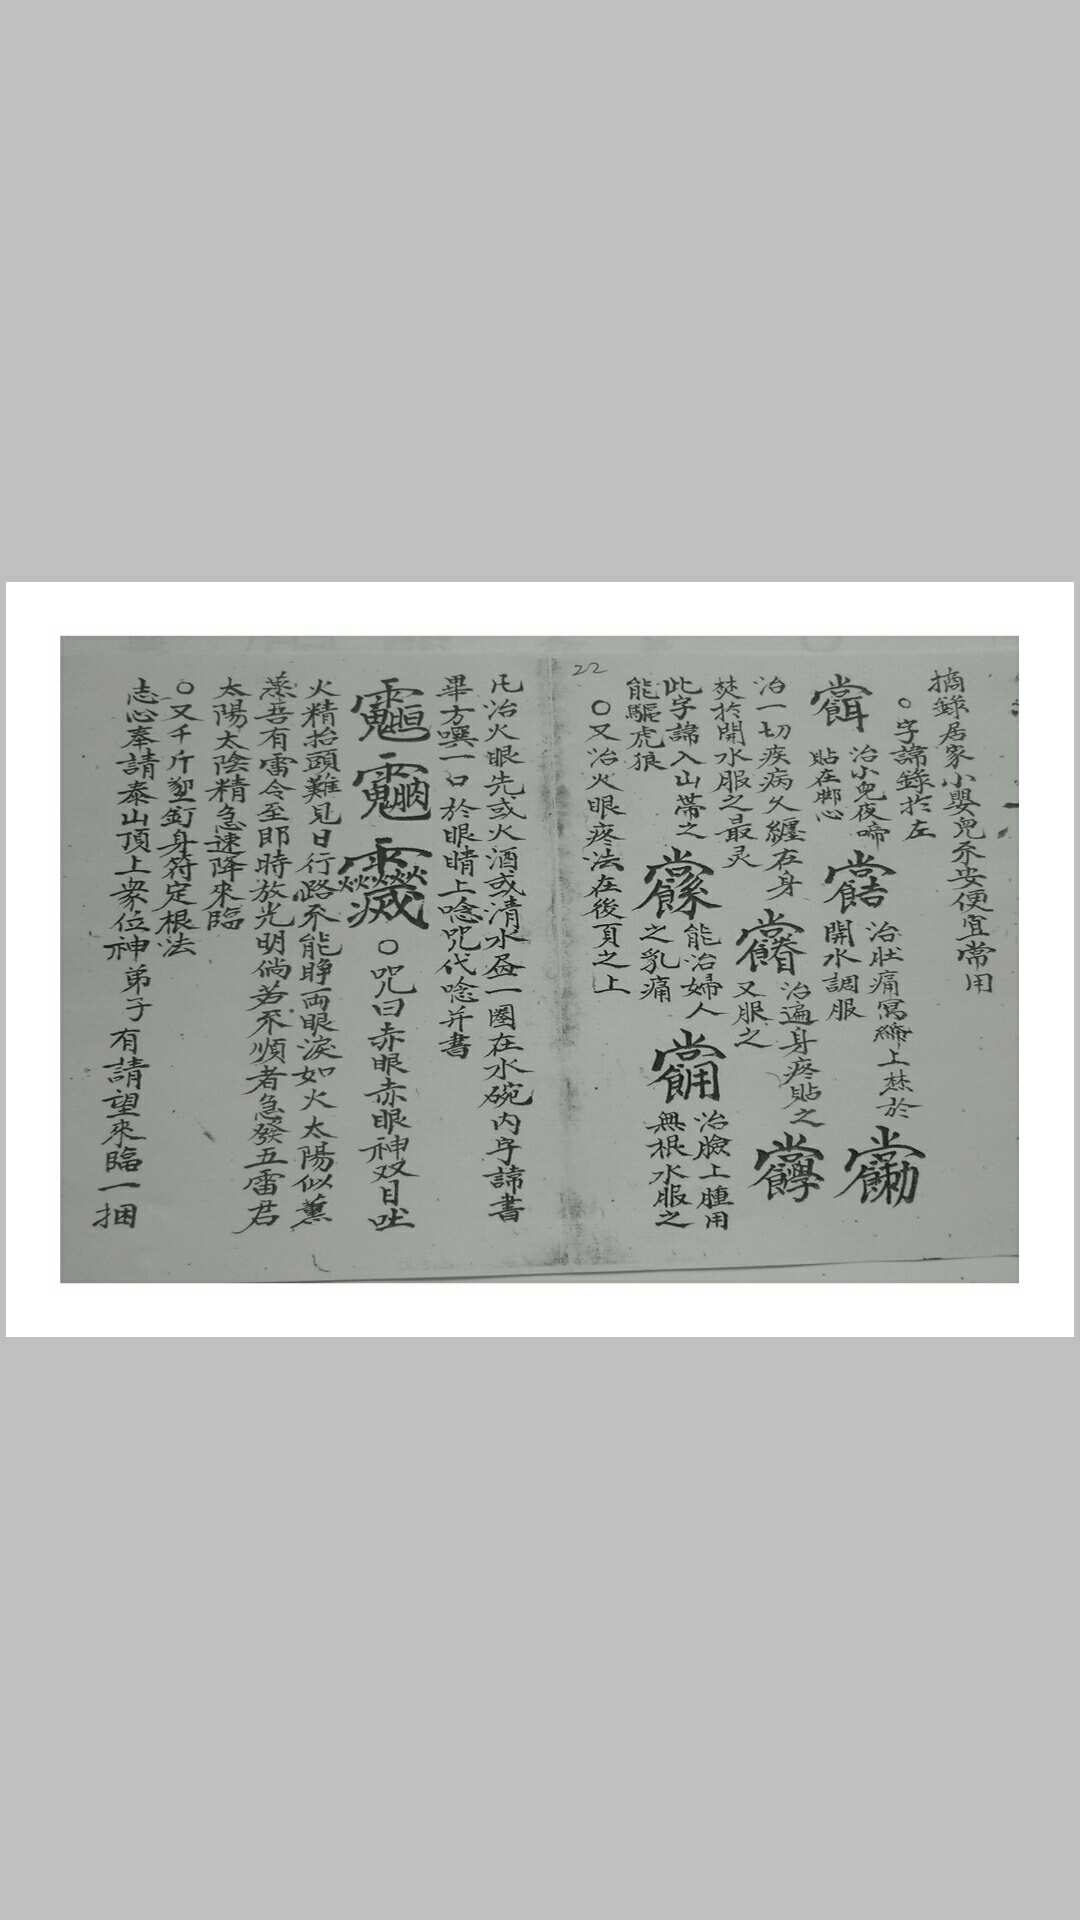 摘錄居家小嬰兒不安便宜常用
○字諱錄於左
治小兒夜啼
貼在脚心
治肚痛寫締上焚於
開水調服
治一切疾病久纏在身
焚於開水服之最灵
治遍身疼貼之
又服之
此字諱入山帶之
能驅虎狼
能治婦人
之乳痛
治臉上腫用
無根水服之
○又治火眼疼法在後頁之上
22
凡治火眼先或火酒或清水㞧一圈在水碗內字諱書
畢方噀一口於眼睛上唸咒代唸并書
○咒曰赤眼赤眼神双目吐
火精抬頭難見日行路不能睁両眼淚如火太陽似薰
蒸吾有雷令至即時放光明倘若不順者急發五雷君
太陽太陰精急速降來臨
○又千斤䥷釘身符定根法
志心奉請泰山頂上衆位神弟子有請望來臨一捆